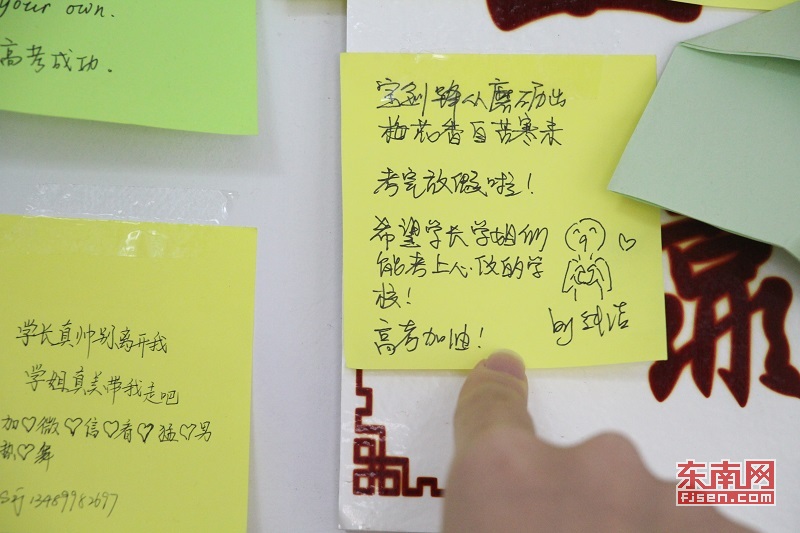 your own.
高考成功.
宝剑锋从磨砺出
梅花香自苦寒来
考完放假啦！
希望学长学姐们
能考上心仪的学
校！
高考加油！
by 纯洁
学长真帅别离开我
学姐真美带我走吧
加♡微♡信♡看♡猛♡男
热♡舞
13489982697
赢
东南网
fjsen.com